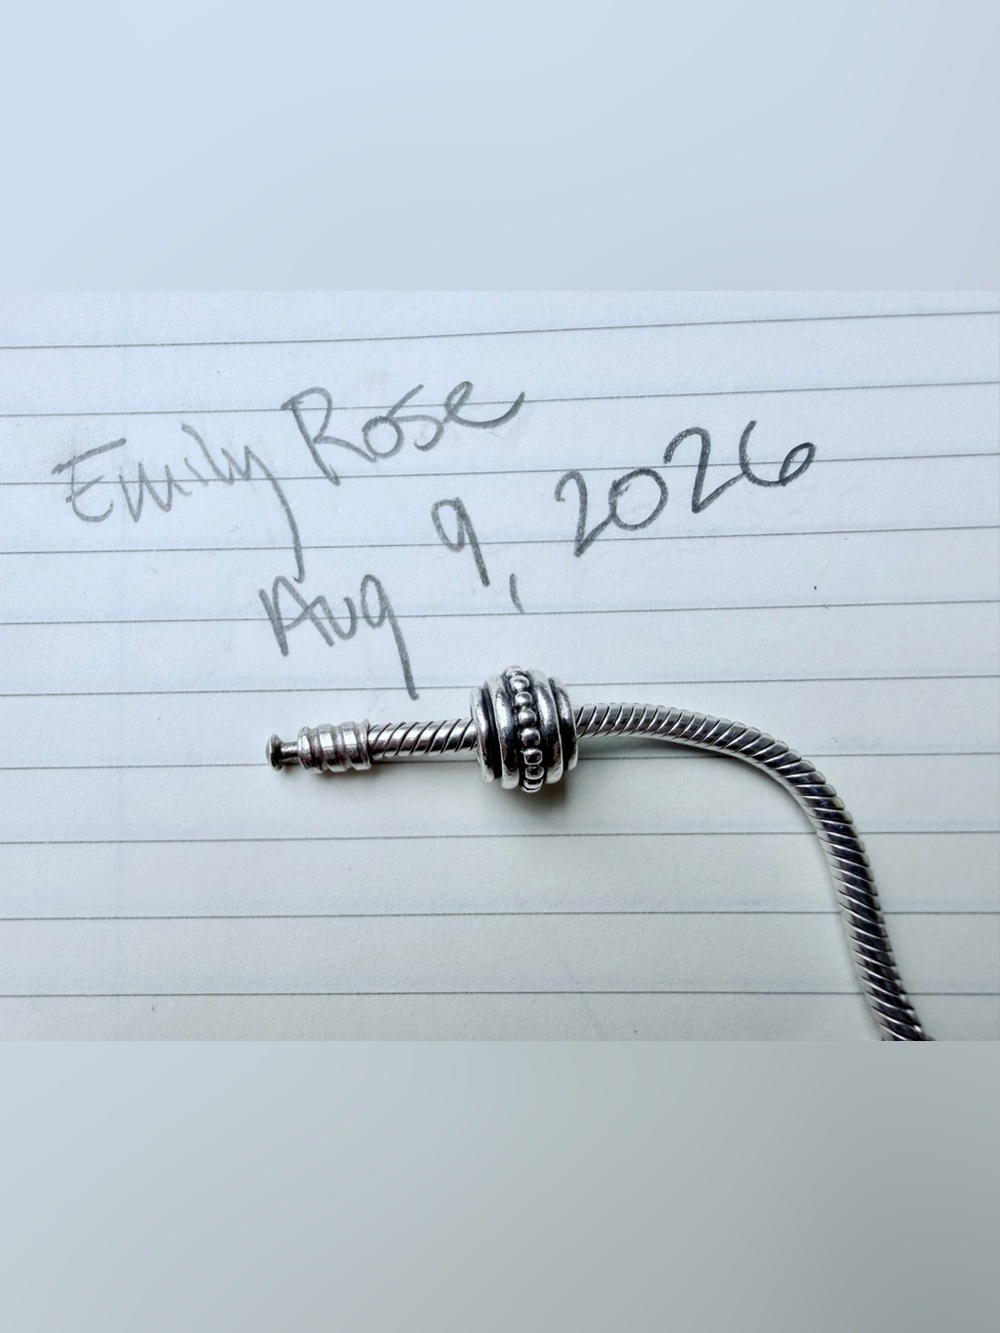 Emily Rose
Aug 9, 2026